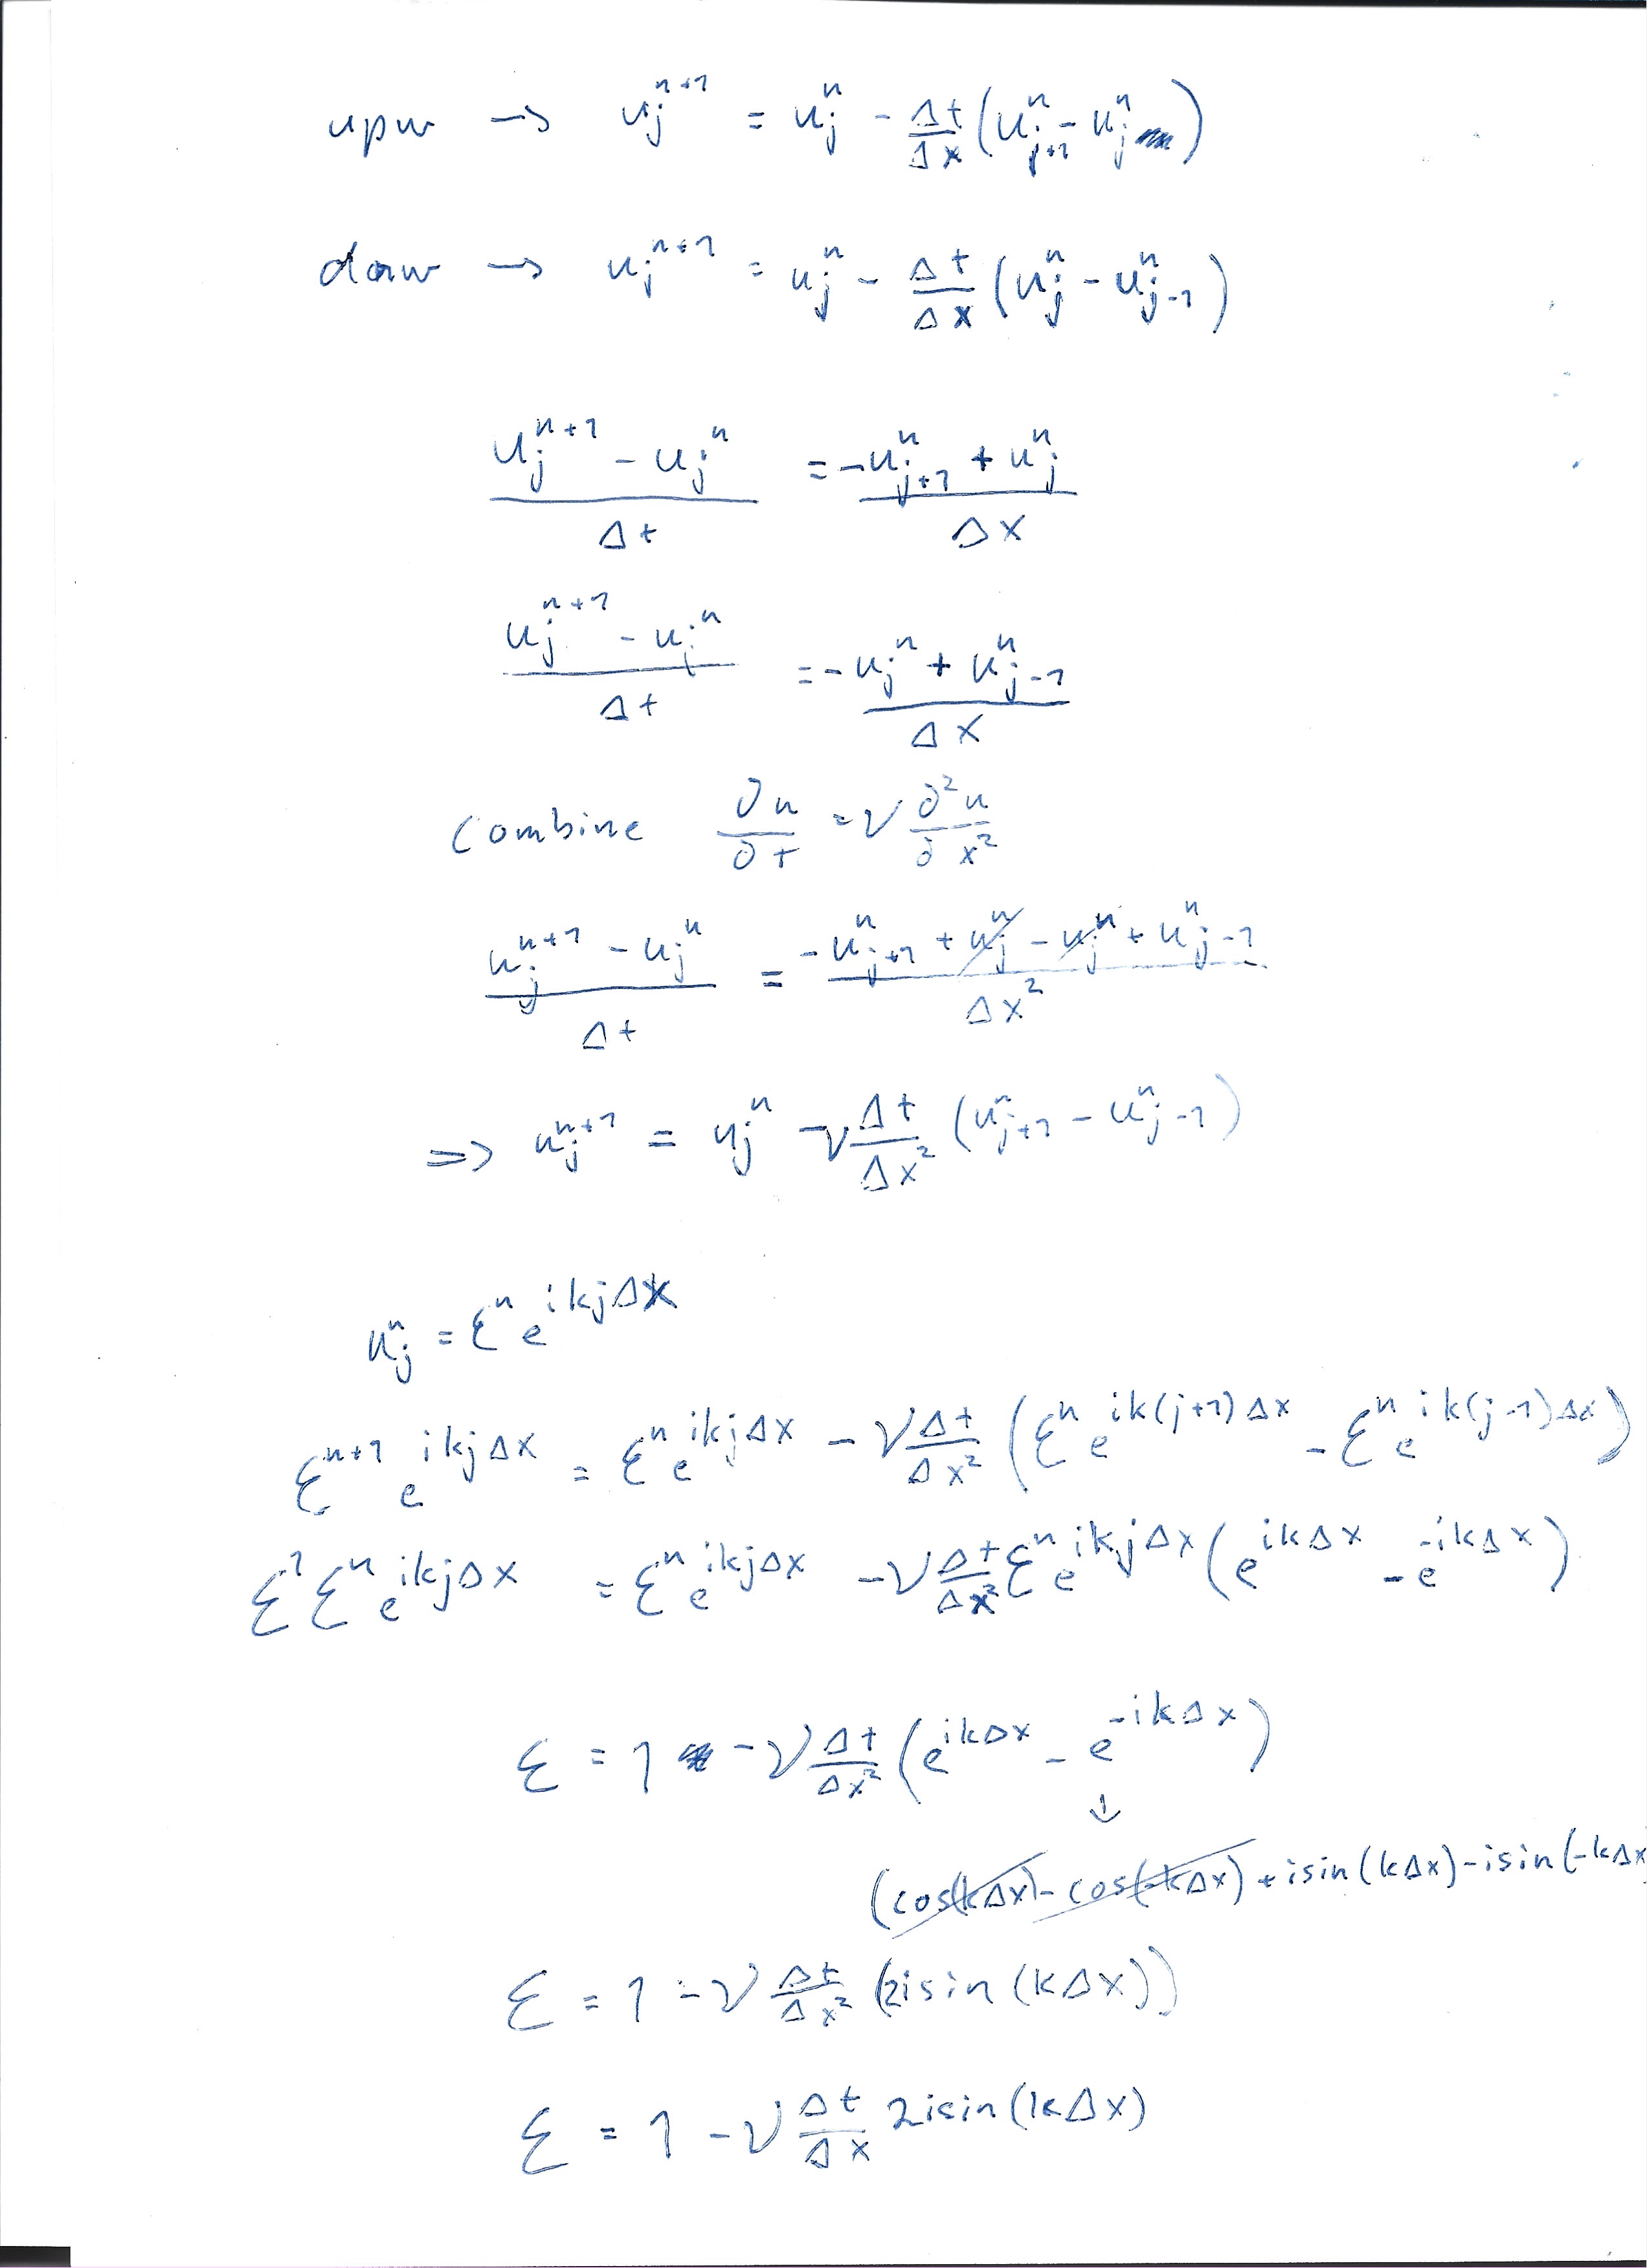 upw → u_j^{n+1} = u_j^n - Δt/Δx (u_{j+1}^n - u_j^n)
dow → u_j^{n+1} = u_j^n - Δt/Δx (u_j^n - u_{j-1}^n)
(u_j^{n+1} - u_j^n)/Δt = (-u_{j+1}^n + u_j^n)/Δx
(u_j^{n+1} - u_j^n)/Δt = (-u_j^n + u_{j-1}^n)/Δx
Combine ∂u/∂t = ν ∂²u/∂x²
(u_j^{n+1} - u_j^n)/Δt = (-u_{j+1}^n + u_j^n - u_j^n + u_{j-1}^n)/Δx²
=> u_j^{n+1} = u_j^n - ν Δt/Δx² (u_{j+1}^n - u_{j-1}^n)
u_j^n = ξ^n e^{ikjΔx}
ξ^{n+1} e^{ikjΔx} = ξ^n e^{ikjΔx} - ν Δt/Δx² (ξ^n e^{ik(j+1)Δx} - ξ^n e^{ik(j-1)Δx})
ξ^1 ξ^n e^{ikjΔx} = ξ^n e^{ikjΔx} - ν Δt/Δx² ξ^n e^{ikjΔx} (e^{ikΔx} - e^{-ikΔx})
ξ = 1 - ν Δt/Δx² (e^{ikΔx} - e^{-ikΔx})
↓
(cos(kΔx) - cos(-kΔx) + isin(kΔx) - isin(-kΔx
ξ = 1 - ν Δt/Δx² (2isin(kΔx))
ξ = 1 - ν Δt/Δx 2isin(kΔx)